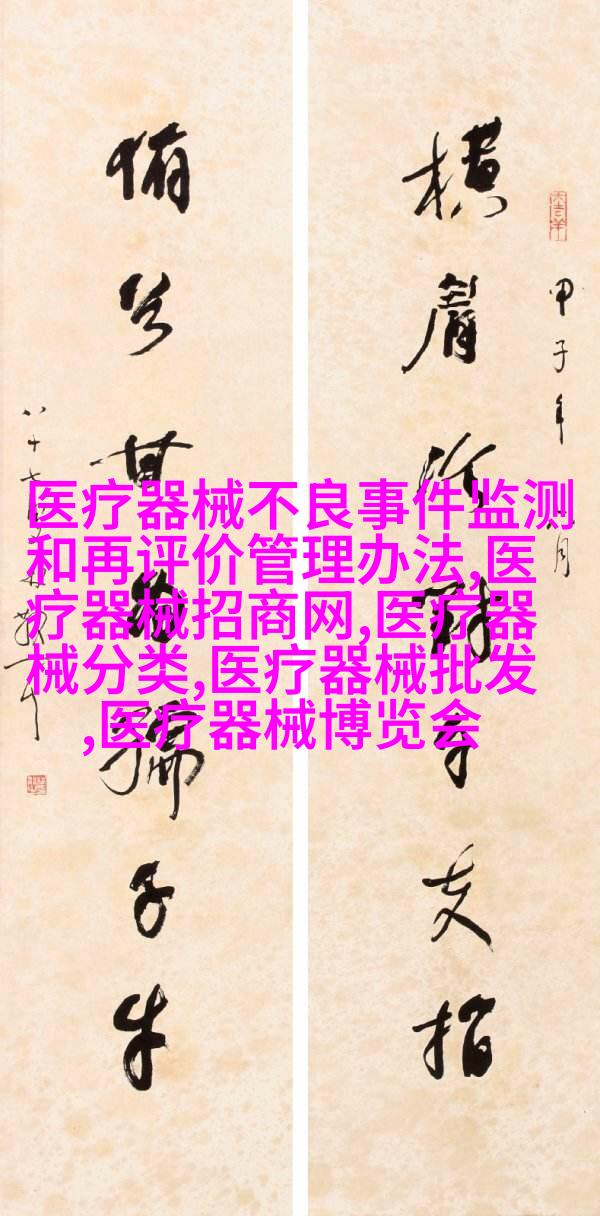 甲子年
横眉冷對千夫指
俯首甘為孺子牛
医疗器械不良事件监测
和再评价管理办法,医
疗器械招商网,医疗器
械分类,医疗器械批发
,医疗器械博览会